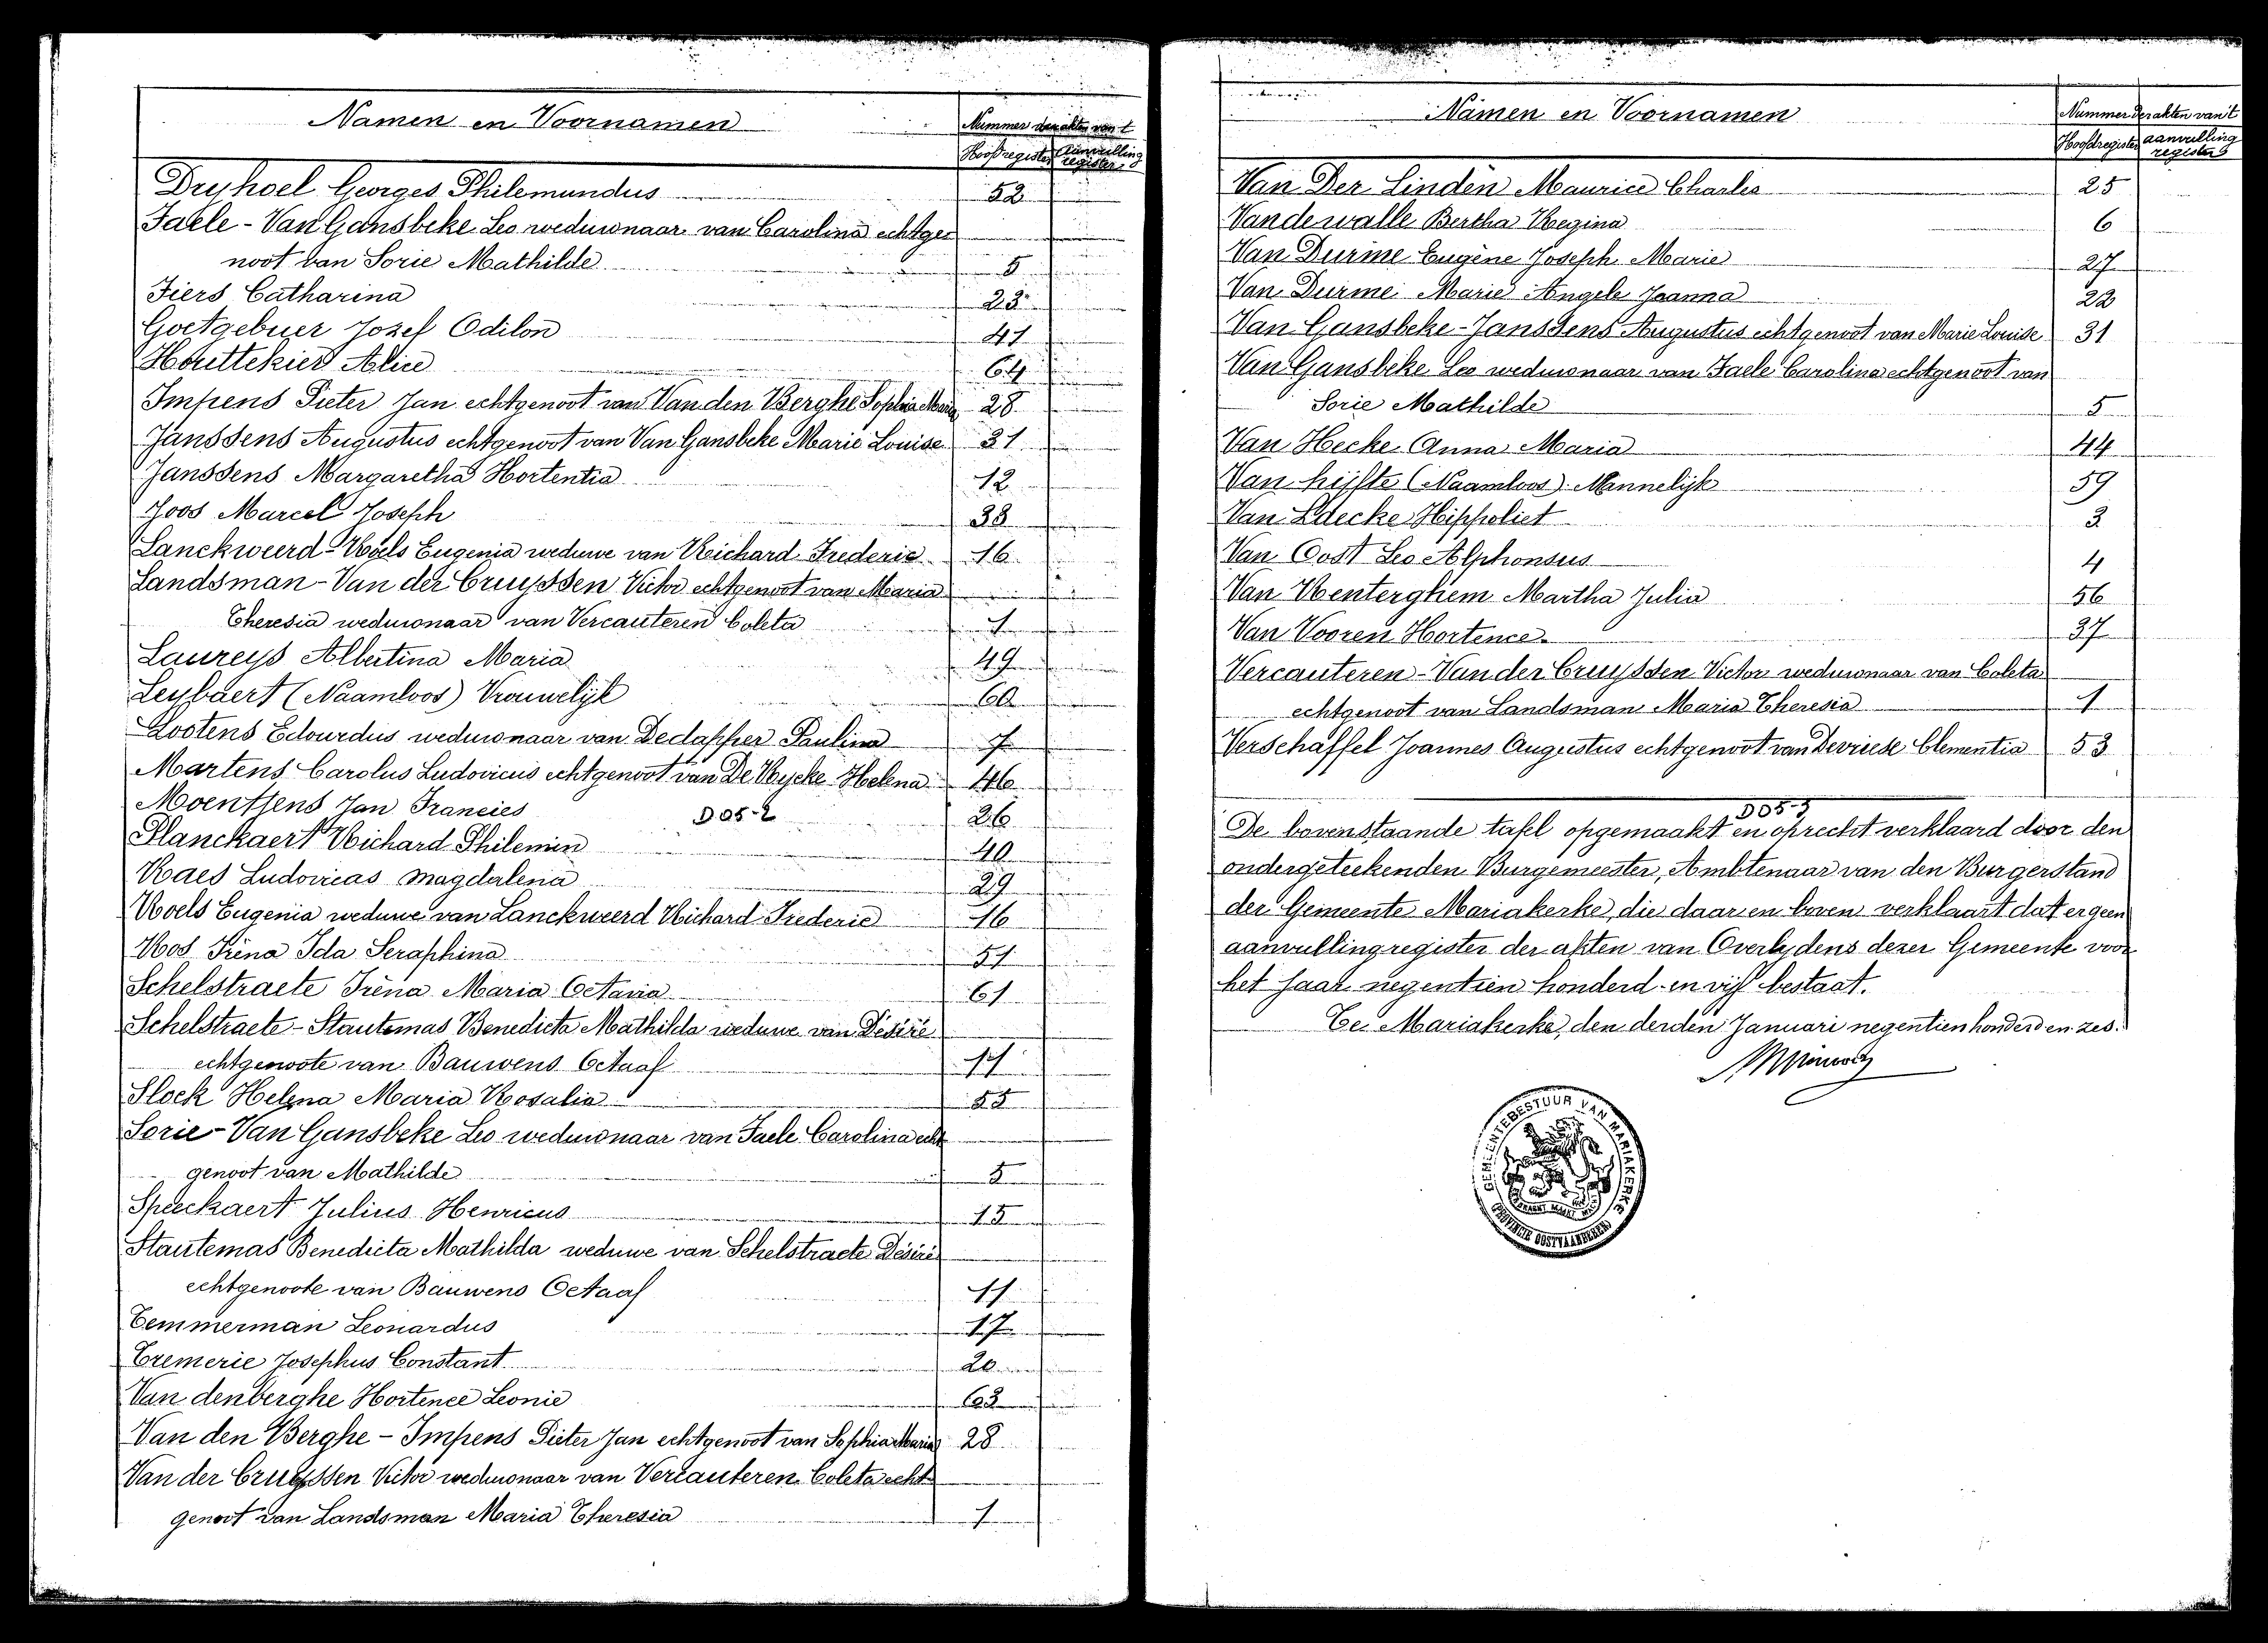 Namen en Voornamen
Nummer der akten van 't
Hoofdregister Aanvulling register
Dryhoel Georges Philemundus 52
Faele - Van Gansbeke Leo weduwnaar van Carolina echtge
noot van Sorie Mathilde 5
Fiers Catharina 23
Goetgebuer Jozef Odilon 41
Houttekier Alice 64
Impens Pieter Jan echtgenoot van Van den Berghe Sophia Maria 28
Janssens Augustus echtgenoot van Van Gansbeke Marie Louise 31
Janssens Margaretha Hortentia 12
Joos Marcel Joseph 38
Lanckweerd - Roels Eugenia weduwe van Richard Frederic 16
Landsman - Van der Cruyssen Victor echtgenoot van Maria
Theresia weduwnaar van Vercauteren Coleta 1
Laureys Albertina Maria 49
Leybaert (Naamloos) Vrouwelijk 60
Lootens Edourdus weduwnaar van Dedapper Paulina 7
Martens Carolus Ludovicus echtgenoot van De Rycke Helena 46
Moenssens Jan Francies D05-2 26
Planckaert Richard Philemin 40
Raes Ludovicas Magdalena 29
Roels Eugenia weduwe van Lanckweerd Richard Frederic 16
Ros Iréna Ida Seraphina 51
Schelstraete Iréna Maria Octavia 61
Schelstraete - Stautemas Benedicta Mathilda weduwe van Désiré
echtgenoote van Bauwens Octaaf 11
Slock Helena Maria Rosalia 55
Sorie - Van Gansbeke Leo weduwnaar van Faele Carolina echt
genoot van Mathilde 5
Speeckaert Julius Henricus 15
Stautemas Benedicta Mathilda weduwe van Schelstraete Désiré
echtgenoote van Bauwens Octaaf 11
Temmerman Leonardus 17
Tremerie Josephus Constant 20
Van denberghe Hortence Leonie 63
Van den Berghe - Impens Pieter Jan echtgenoot van Sophia Maria 28
Van der Cruyssen Victor weduwnaar van Vercauteren Coleta echt
genoot van Landsman Maria Theresia 1
Namen en Voornamen
Nummer der akten van 't
Hoofdregister aanvulling register
Van Der Linden Maurice Charles 25
Vandewalle Bertha Regina 6
Van Durme Eugène Joseph Marie 27
Van Durme Marie Angele Joanna 22
Van Gansbeke - Janssens Augustus echtgenoot van Marie Louise 31
Van Gansbeke Leo weduwnaar van Faele Carolina echtgenoot van
Sorie Mathilde 5
Van Hecke Anna Maria 44
Van hijfte (Naamloos) Mannelijk 59
Van Laecke Hippoliet 3
Van Oost Leo Alphonsus 4
Van Renterghem Martha Julia 56
Van Vooren Hortence 37
Vercauteren - Van der Cruyssen Victor weduwnaar van Coleta
echtgenoot van Landsman Maria Theresia 1
Verschaffel Joannes Augustus echtgenoot van Devriese Clementia 53
D05-3
De bovenstaande tafel opgemaakt en oprecht verklaard door den
ondergeteekenden Burgemeester, Ambtenaar van den Burgerstand
der Gemeente Mariakerke, die daar en boven verklaart dat er geen
aanvullingregister der akten van Overlydens dezer Gemeente voor
het jaar negentien honderd en vijf bestaat.
Te Mariakerke, den derden Januari negentienhonderd en zes.
GEMEENTEBESTUUR VAN MARIAKERKE
PROVINCIE OOSTVLAANDEREN